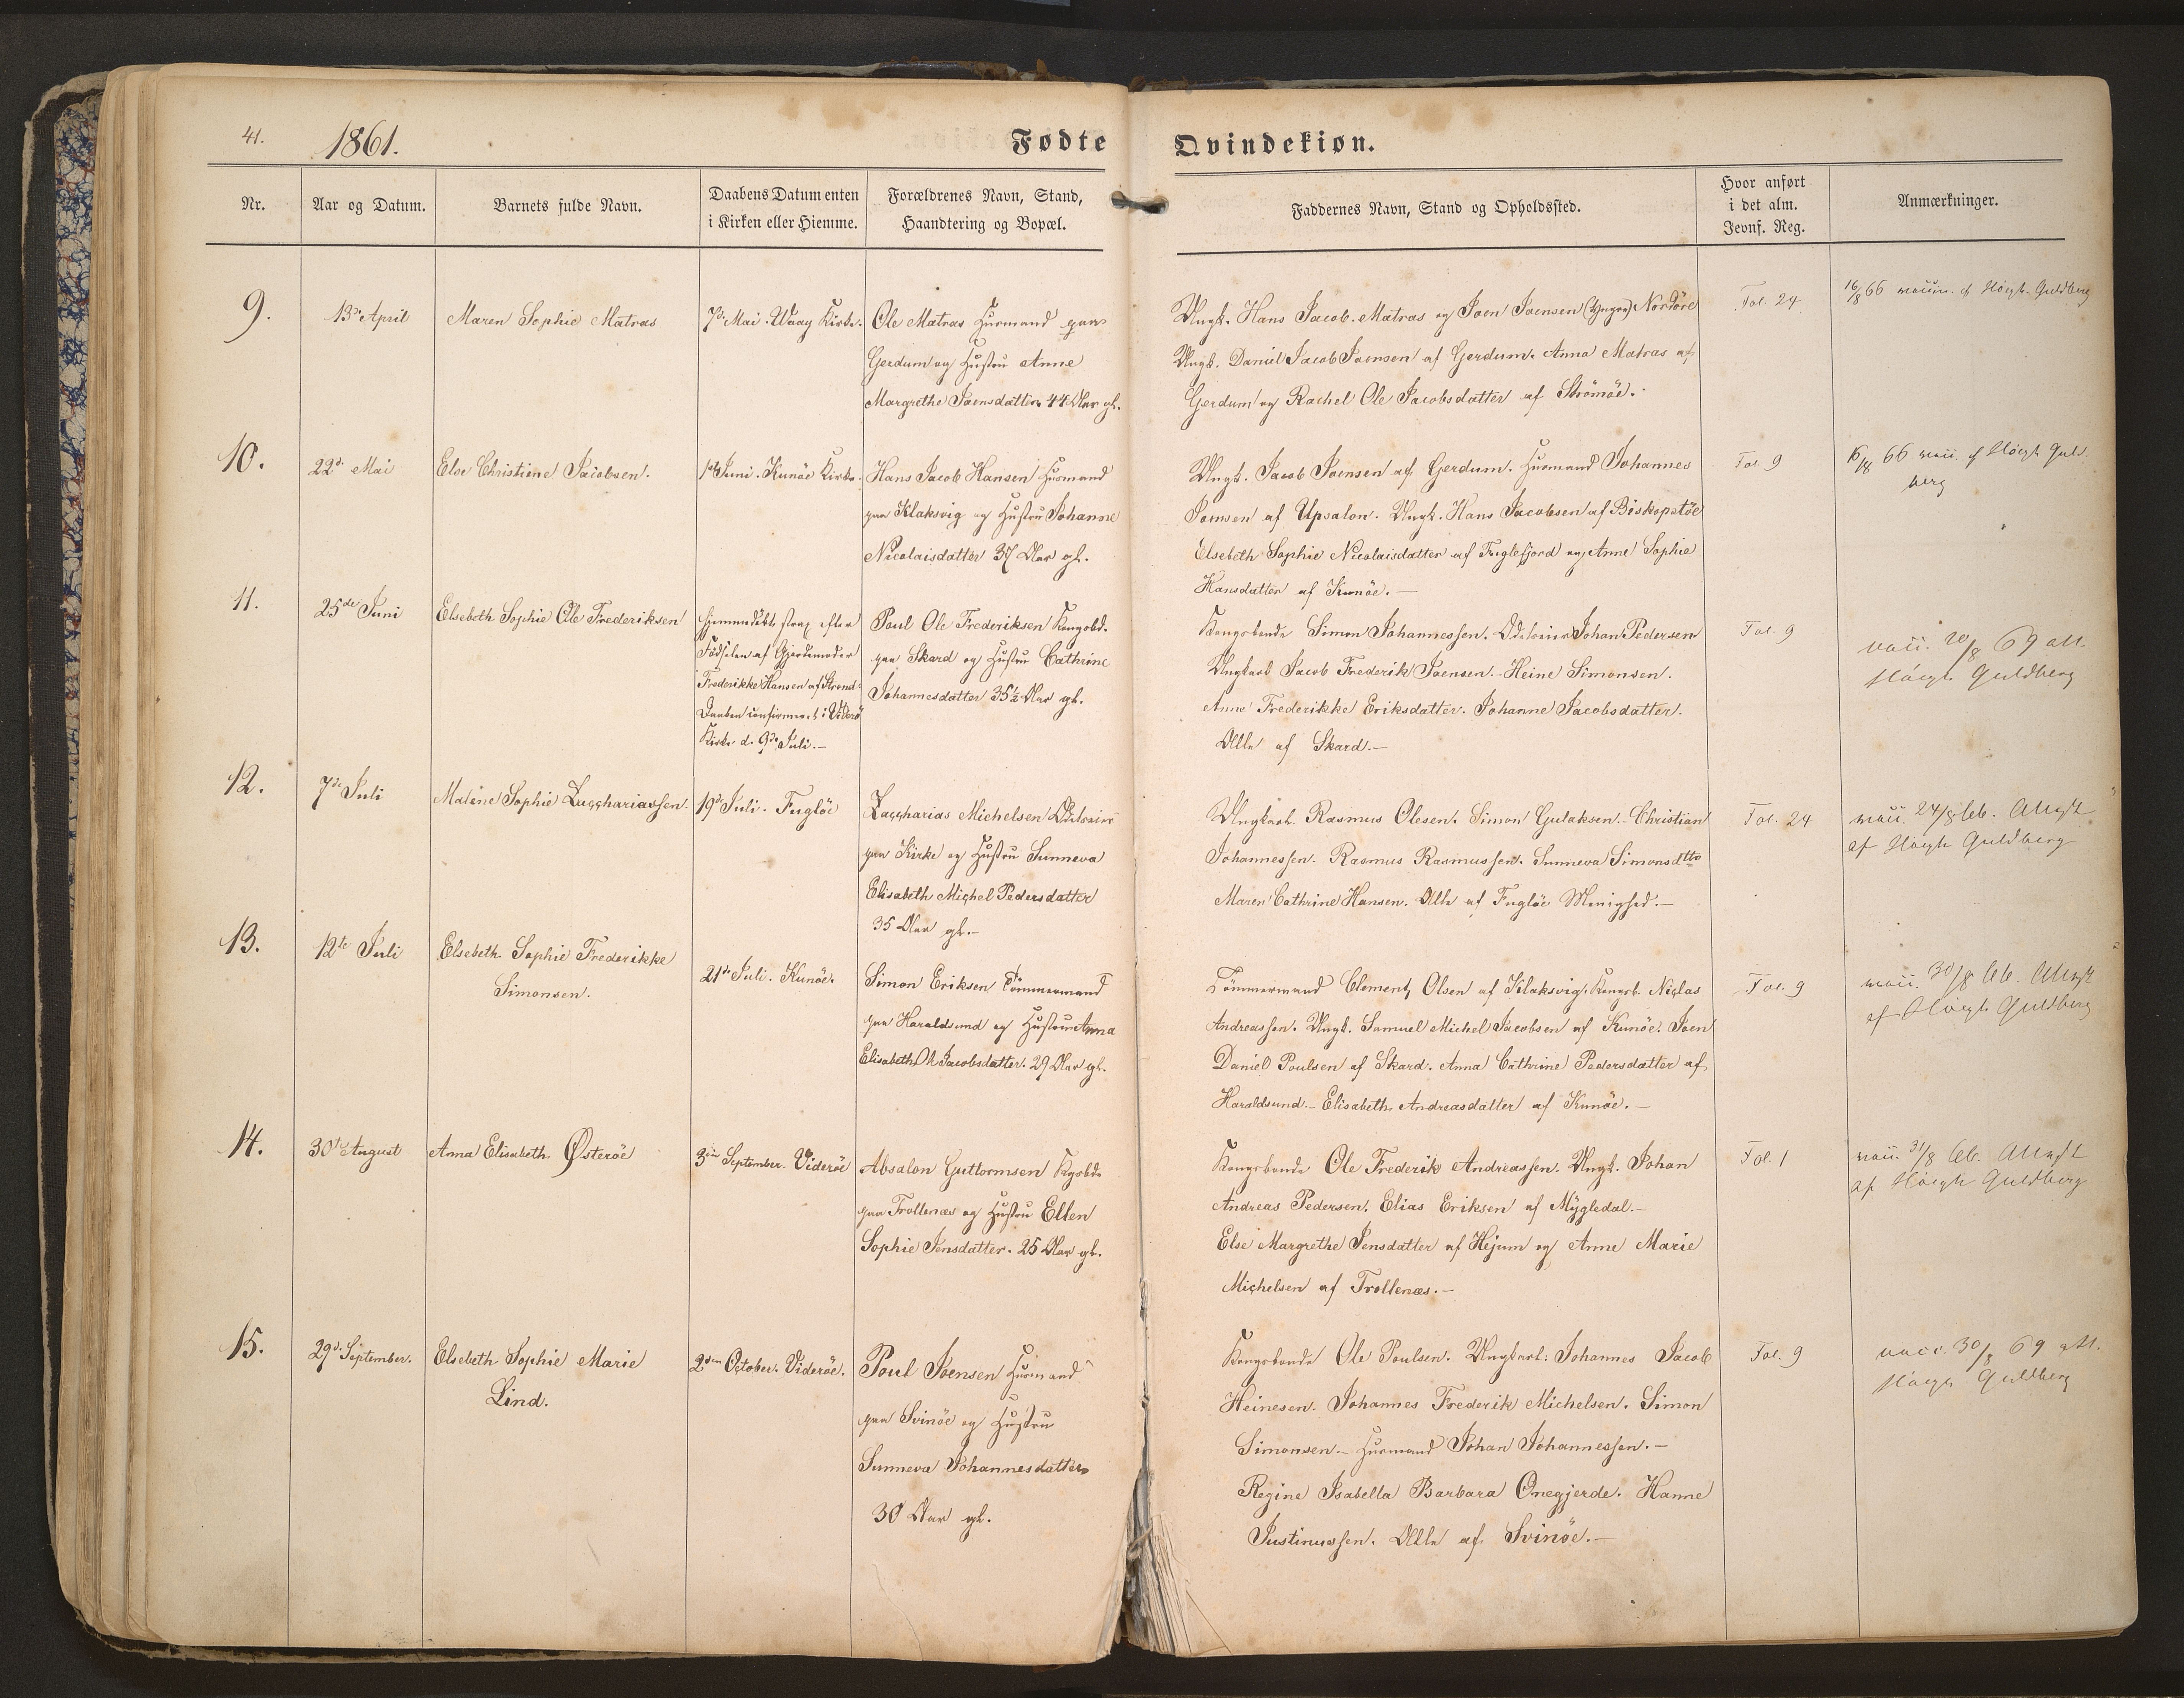 41.
1861.
Fødte
Qvindekiøn.
Nr.
Aar og Datum.
Barnets fulde Navn.
Daabens Datum enten
i Kirken eller Hiemme.
Forældrenes Navn, Stand,
Haandtering og Bopæl.
Faddernes Navn, Stand og Opholdssted.
Hvor anført
i det alm.
Jevnf. Reg.
Anmærkninger.
9.
13de April
Maren Sophie Matras
7de Mai. Waag Kirke.
Ole Matras Huusmand paa
Gerdum og Hustru Anne
Margrethe Joensdatter 44 Aar gl.
Ungk. Hans Jacob Matras og Joen Joensen (Yngre) Nordöre
Ungk. Daniel Jacob Joensen af Gerdum. Anna Matras af
Gerdum og Rachel Ole Jacobsdatter af Strömöe.
Fol. 24
16/8 66 vaccin. af Höegh-Guldberg
10.
22de Mai
Else Christine Jacobsen.
Juni. Kunöe Kirke.
Hans Jacob Hansen Huusmand
paa Klaksvig og Hustru Johanne
Nicolaisdatter 37 Aar gl.
Ungk. Jacob Joensen af Gerdum. Huusmand Johannes
Joensen af Upsalon. Ungk. Hans Jacobsen af Biskopstöe
Elsebeth Sophie Nicolaisdatter af Fuglefjord og Anne Sophie
Hansdatter af Kunöe. —
Fol. 9
16/8 66 vacc. af Höegh Guld
berg
11.
25de Juni
Elsebeth Sophie Ole Frederiksen
Hjemmedöbt strax efter
Födselen af Gjordemoder
Frederikke Hansen af Strend
Daaben confirmeret i Viderö
Kirke d. 9de Juli. —
Poul Ole Frederiksen Kongsbd.
paa Skard og Hustru Cathrine
Johannesdatter 35½ Aar gl.
Kongsbonde Simon Johannessen. Odelsmd Johan Pedersen
Ungkarl Jacob Frederik Joensen. Heine Simonsen.
Anne Frederikke Eriksdatter. Johanne Jacobsdatter.
Alle af Skard. —
Fol. 9
vacc. 20/8 69 att.
Höegh Guldberg
12.
7de Juli
Malene Sophie Zacchariassen.
19de Juli. Fuglöe
Zaccharias Michelsen
paa Kirke og Hustru Sunneva
Elisabeth Michel Pedersdatter
35 Aar gl. —
Ungkarl. Rasmus Olesen. Simon Gulaksen. Christian
Johannessen. Rasmus Rasmussen. Sunneva Simonsdtts
Maren Cathrine Hansen. Alle af Fuglöe Menighed. —
Fol. 24
vacc. 24/8 Attest
af Höegh Guldberg
13.
12te Juli
Elsebeth Sophie Frederikke
Simonsen.
21de Juli. Kunöe.
Simon Eriksen Tömmermand
paa Haraldsund og Hustru Anna
Elisabeth Ole Jacobsdatter. 29 Aar gl.
Tömmermand Clement Olsen af Klaksvig. Kongsb. Niclas
Andreassen. Ungk. Samuel Michel Jacobsen af Kunöe. Joen
Daniel Poulsen af Skard. Anna Cathrine Pedersdatter af
Haraldsund. — Elisabeth Andreasdatter af Kunöe. —
Fol. 9
vacc. 30/8 Attest
af Höegh Guldberg
14.
30te August
Anna Elisabeth Østeröe
3die September. Videröe
Absalon Guttormsen Kgsbd.
paa Trollenæs og Hustru Ellen
Sophie Jensdatter. 25 Aar gl.
Kongsbonde Ole Frederik Andreassen. Ungk. Johan
Andreas Pedersen. Elias Eriksen af Mygledal. —
Else Margrethe Jensdatter af Hejum og Anne Marie
Michelsen af Trollenæs. —
Fol. 1
vacc. 31/8 Attest
af Höegh Guldberg
15.
29de September.
Elsebeth Sophie Marie
Lind.
2den October. Videröe.
Poul Joensen Huusmand
paa Svinöe og Hustru
Sunneva Johannesdatter
30 Aar gl.
Kongsbonde Ole Poulsen. Ungkarl: Johannes Jacob
Heinesen. Johannes Frederik Michelsen. Simon
Simonsen. — Huusmand Johan Johannessen. —
Regine Isabella Barbara Onegjerde. Hanne
Justinussen. Alle af Svinöe. —
Fol. 9
vacc. 30/8 69 att.
Höegh Guldberg